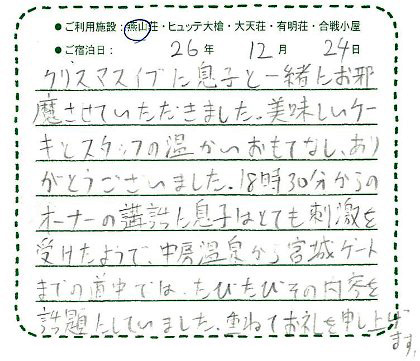 ●ご利用施設：燕山荘・ヒュッテ大槍・大天荘・有明荘・合戦小屋
●ご宿泊日：26年12月24日
クリスマスイブに息子と一緒にお邪
魔させていただきました。美味しいケー
キとスタッフの温かいおもてなし、あり
がとうございました。18時30分からの
オーナーの講話に息子はとても刺激を
受けたようで、中房温泉から宮城ゲート
までの道中では、たびたびその内容を
話題にしていました。重ねてお礼を申し上げ
ます。